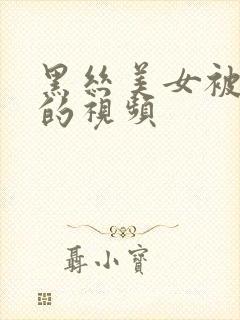 黑丝美女被
的視頻
聶小寶